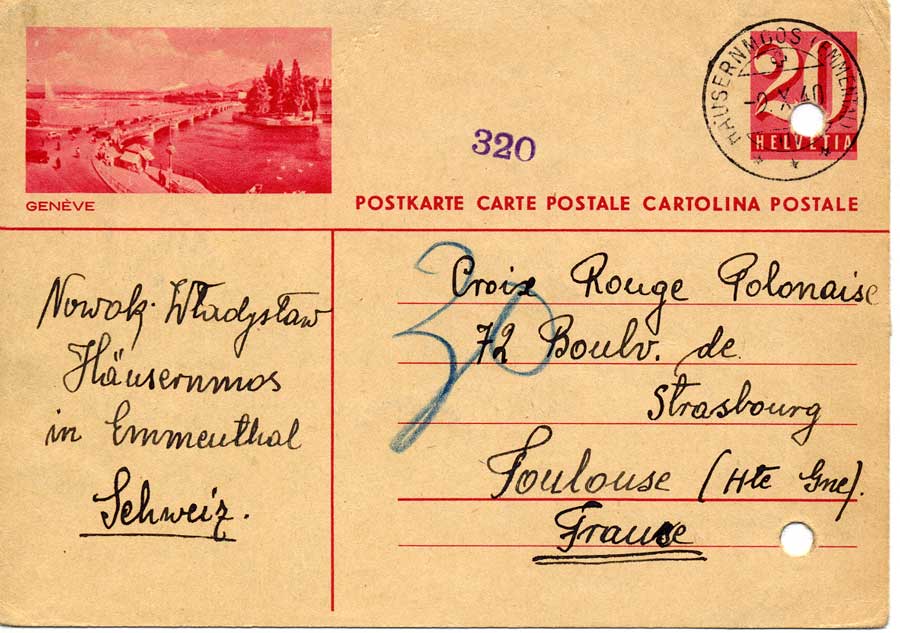 GENÈVE
320
HÄUSERNMOOS (EMMENTAL)
20
HELVETIA
POSTKARTE CARTE POSTALE CARTOLINA POSTALE
Nowak Władysław
Häusernmos
in Emmenthal
Schweiz.
30
Croix Rouge Polonaise
72 Boulv. de
Strasbourg
Toulouse (Hte Gne).
France